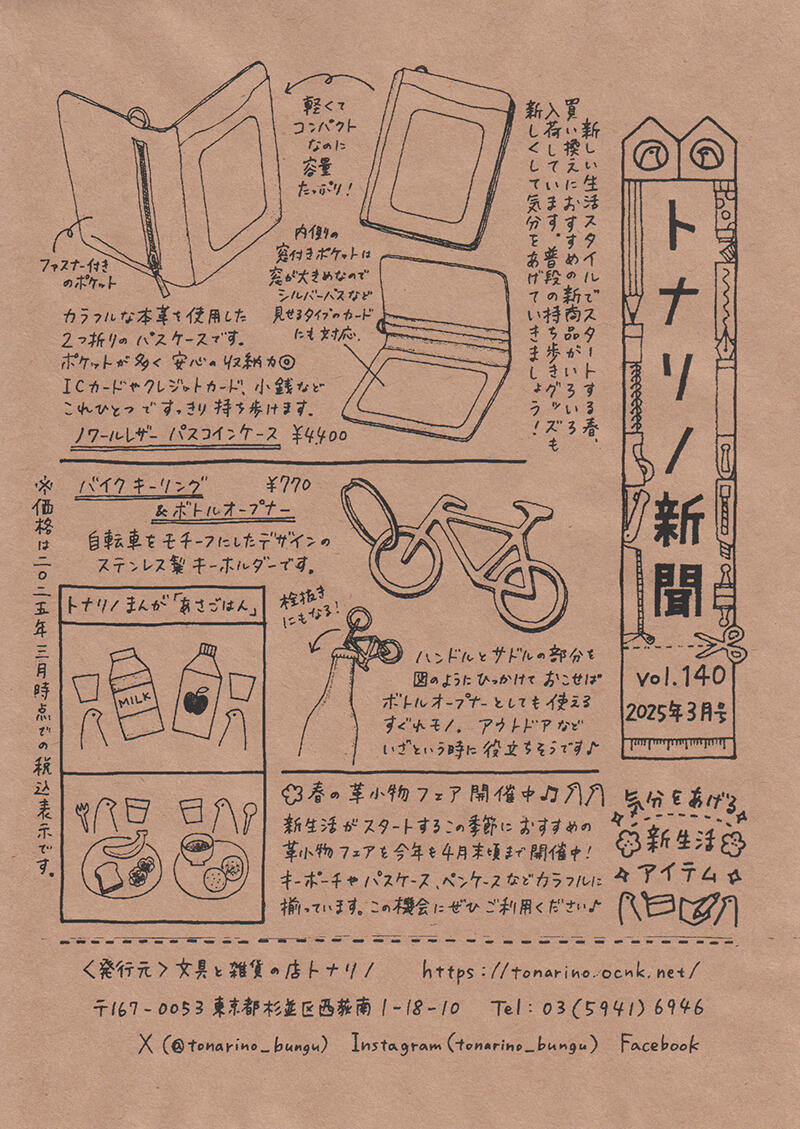 トナリノ新聞
vol.140
2025年3月号
新しい生活スタイルでスタートする春、
買い換えにおすすめの新商品がいろいろ
入荷しています。普段の持ち歩きグッズも
新しくして気分をあげていきましょう！
気分をあげる
新生活
アイテム
軽くて
コンパクト
なのに
容量
たっぷり！
ファスナー付き
のポケット
内側の
窓付きポケットは
窓が大きめなので
シルバーパスなど
見せるタイプのカード
にも対応.
カラフルな本革を使用した
2つ折りのパスケースです。
ポケットが多く安心の収納力◎
ICカードやクレジットカード、小銭など
これひとつですっきり持ち歩けます。
ノワールレザー パスコインケース ¥4,400
バイクキーリング ¥770
&ボトルオープナー
自転車をモチーフにしたデザインの
ステンレス製キーホルダーです。
栓抜き
にもなる！
ハンドルとサドルの部分を
図のようにひっかけておこせば
ボトルオープナーとしても使える
すぐれモノ。アウトドアなど
いざという時に役立ちそうです♪
トナリノまんが「あさごはん」
MILK
春の革小物フェア開催中♫
新生活がスタートするこの季節におすすめの
革小物フェアを今年も4月末頃まで開催中！
キーポーチやパスケース、ペンケースなどカラフルに
揃っています。この機会にぜひご利用ください♪
※価格は二〇二五年三月時点での税込表示です。
<発行元>文具と雑貨の店トナリノ https://tonarino.ocnk.net/
〒167-0053 東京都杉並区西荻南1-18-10 Tel: 03(5941)6946
X (@tonarino_bungu) Instagram (tonarino_bungu) Facebook